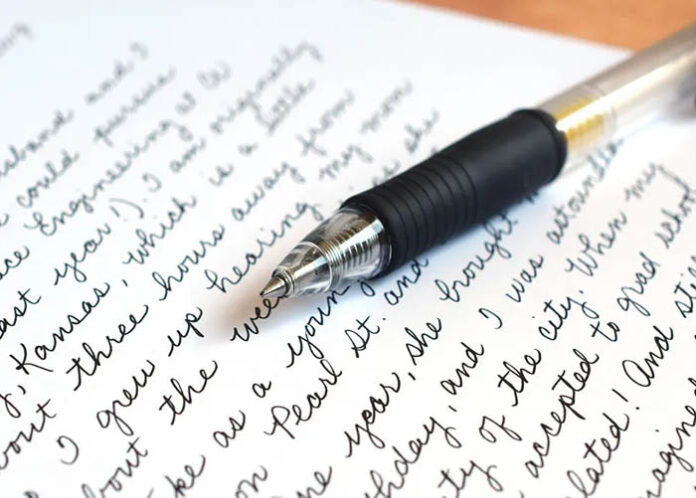 and I
could pursue
Engineering at CU
last year!). I am originally
Kansas, which is a little
about three hours away from
I grew up hearing my mom
about the she
as a young
on Pearl St. and
year, she brought
and I was
of the city. When my
accepted to grad school
And